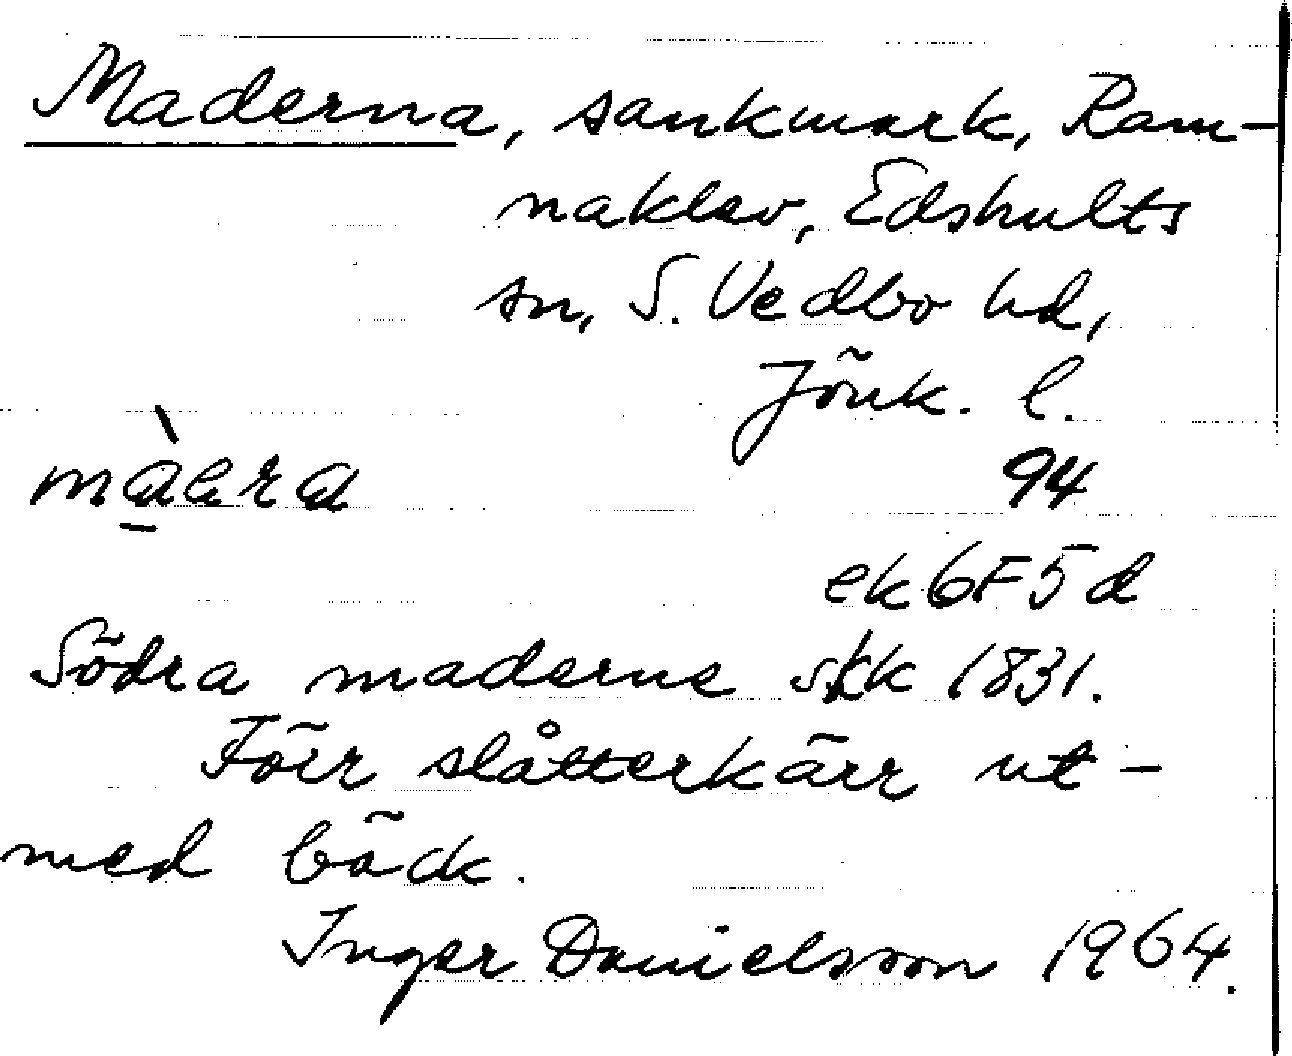 Maderna, sankmark, Ram-
naklev, Edshults
sn, S. Vedbo hd,
Jönk. l.
màera
94
ek 6F5d
Södra maderne skk 1831.
Förr slåtterkärr ut-
med bäck.
Inger Danielsson 1964.